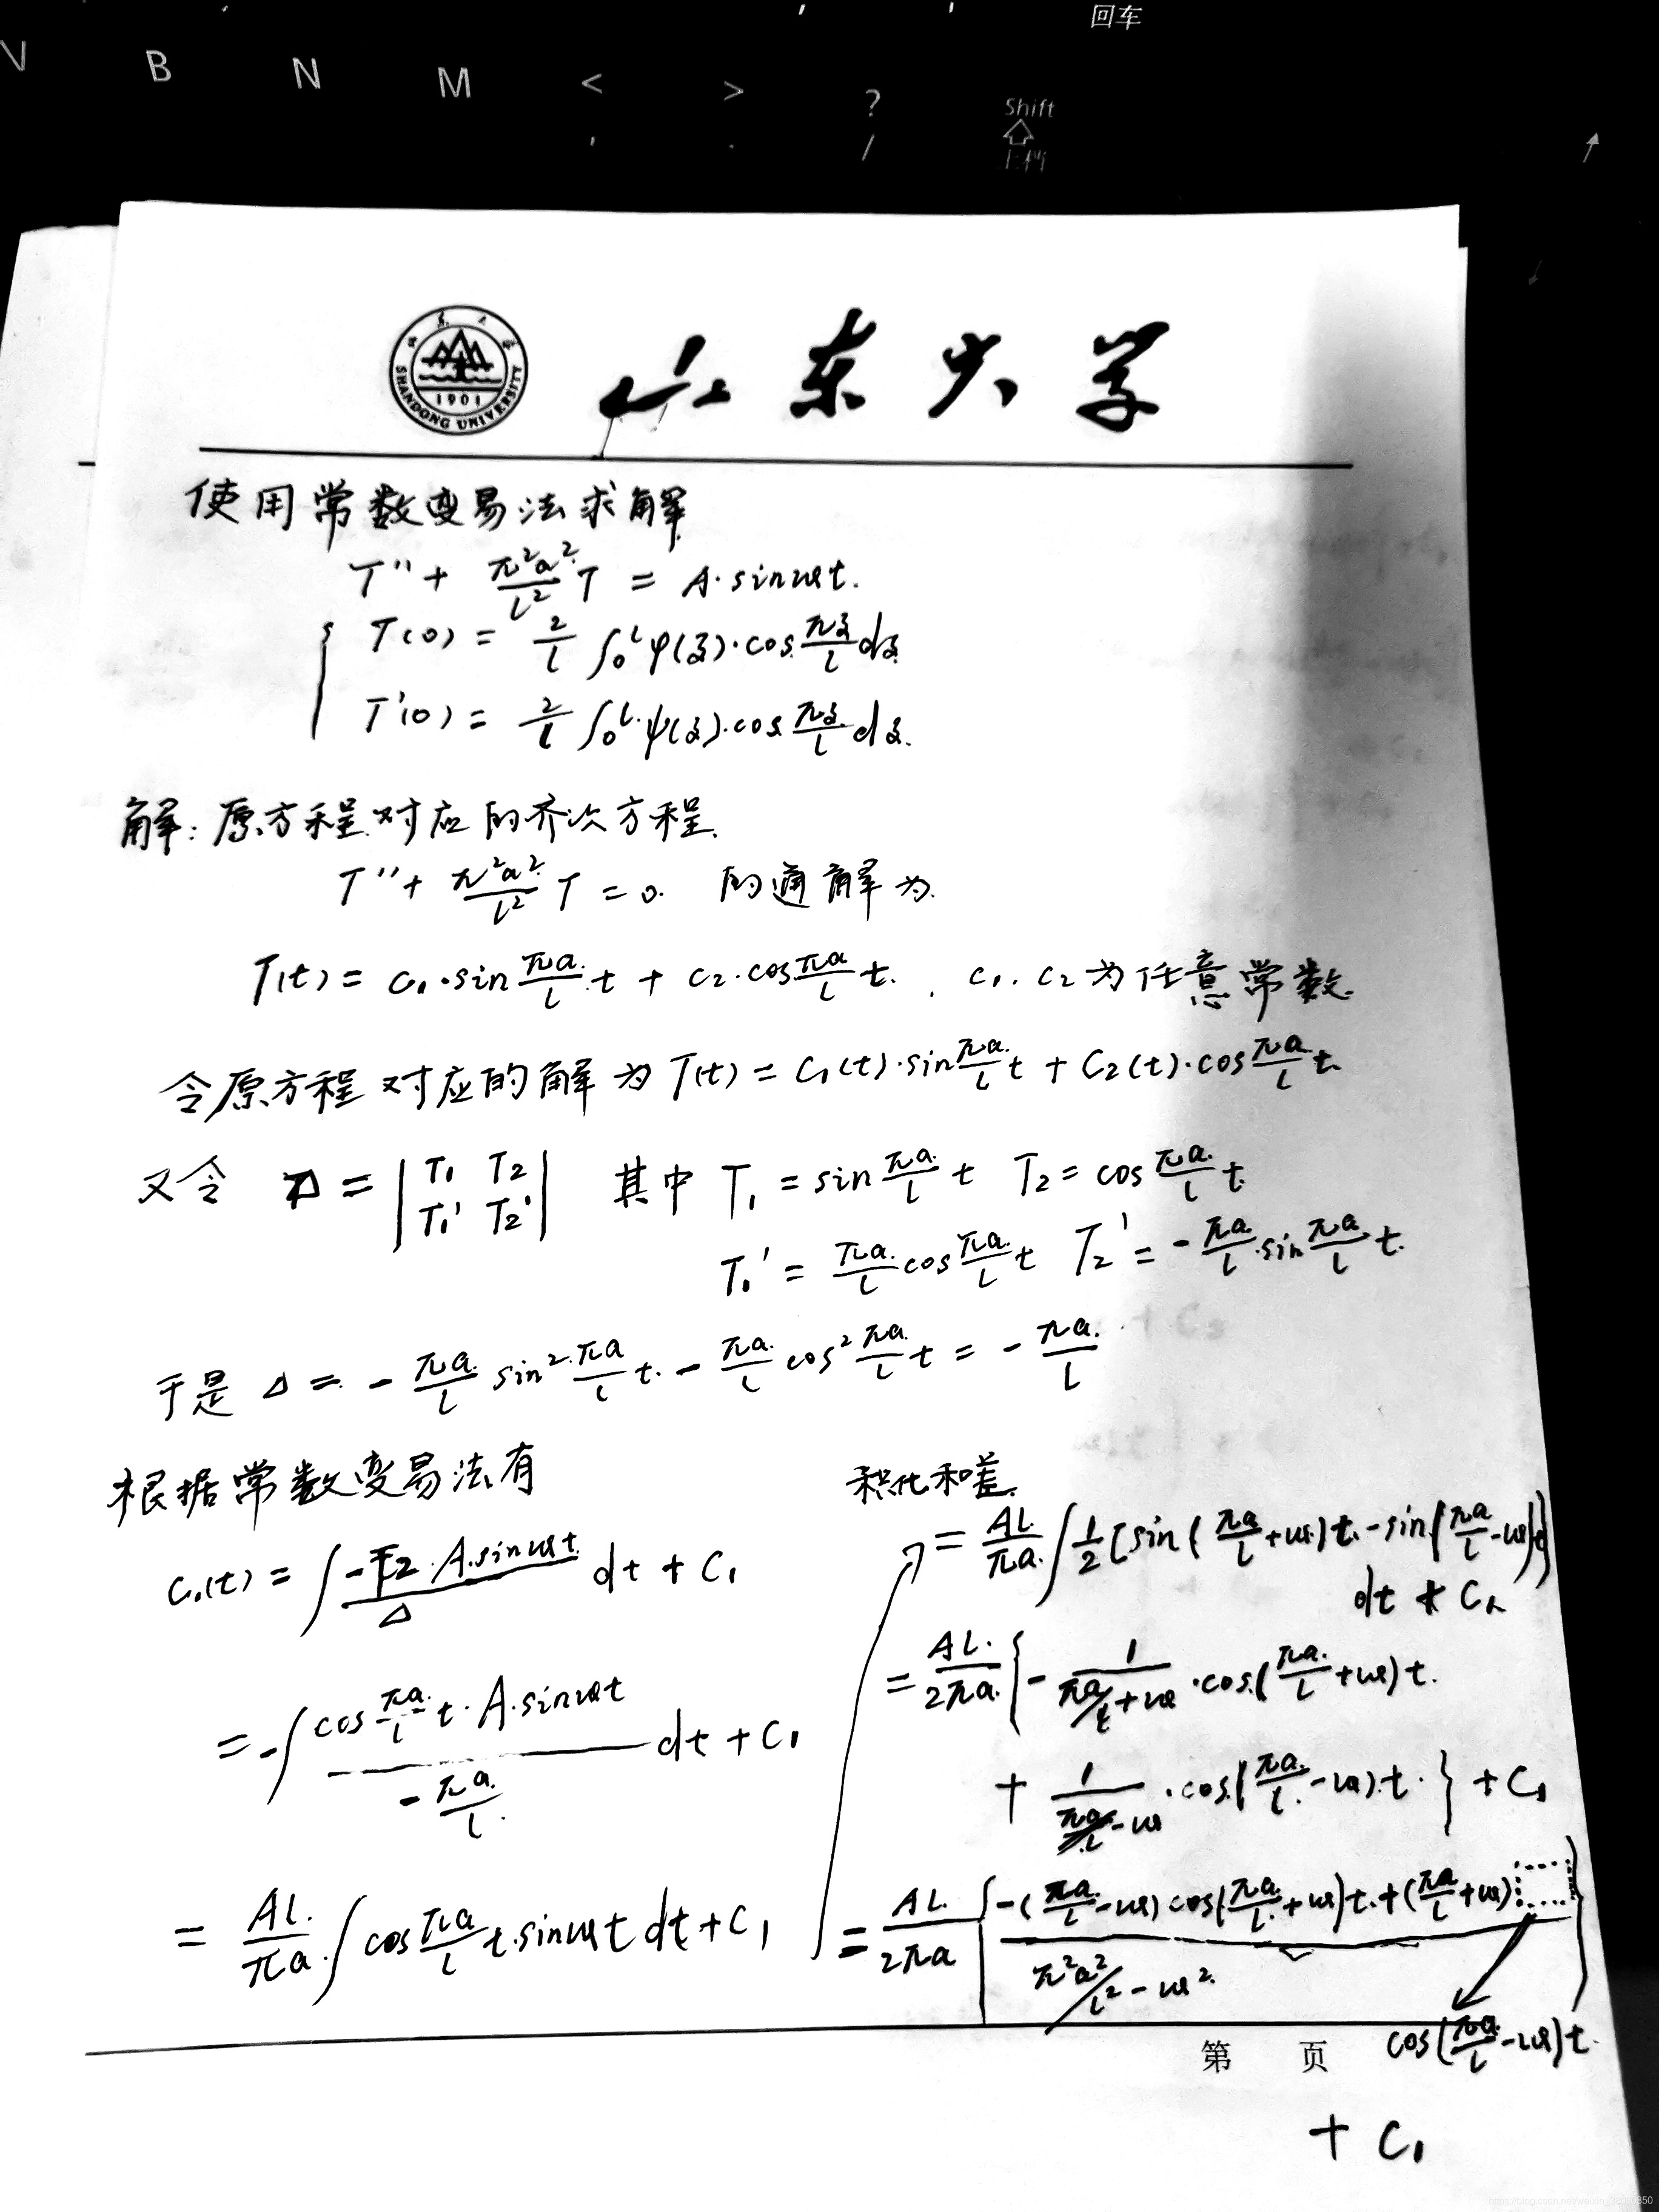 回车
V B N M < > ? Shift
, . /
山东大学
SHANDONG UNIVERSITY
1901
使用常数变易法求解
T'' + \frac{π²a²}{l²} T = A·sinωt.
T(0) = \frac{2}{l} ∫₀ˡ φ(ξ)·cos\frac{πξ}{l} dξ
T'(0) = \frac{2}{l} ∫₀ˡ ψ(ξ)·cos\frac{πξ}{l} dξ.
解: 原方程对应的齐次方程.
T'' + \frac{π²a²}{l²} T = 0. 的通解为
T(t) = C₁·sin\frac{πa}{l}t + C₂·cos\frac{πa}{l}t. , C₁. C₂为任意常数.
令原方程对应的解为 T(t) = C₁(t)·sin\frac{πa}{l}t + C₂(t)·cos\frac{πa}{l}t.
又令 Δ = |T₁ T₂; T₁' T₂'| 其中 T₁ = sin\frac{πa}{l}t T₂ = cos\frac{πa}{l}t
T₁' = \frac{πa}{l}cos\frac{πa}{l}t T₂' = -\frac{πa}{l}·sin\frac{πa}{l}t.
于是 Δ = -\frac{πa}{l} sin²\frac{πa}{l}t - \frac{πa}{l} cos²\frac{πa}{l}t = -\frac{πa}{l}
根据常数变易法有
C₁(t) = ∫\frac{-T₂·A·sinωt}{Δ} dt + C₁
= -∫\frac{cos\frac{πa}{l}t·A·sinωt}{-\frac{πa}{l}} dt + C₁
= \frac{Al}{πa}∫cos\frac{πa}{l}t·sinωt dt + C₁
积化和差.
= \frac{Al}{πa}∫\frac{1}{2}[sin(\frac{πa}{l}+ω)t - sin(\frac{πa}{l}-ω)t]
dt + C₁
= \frac{Al}{2πa}{-\frac{1}{πa/l+ω}·cos(\frac{πa}{l}+ω)t.
+ \frac{1}{\frac{πa}{l}-ω}·cos(\frac{πa}{l}-ω)t.} + C₁
= \frac{Al}{2πa}{\frac{-(\frac{πa}{l}-ω)cos(\frac{πa}{l}+ω)t + (\frac{πa}{l}+ω)}{π²a²/l²-ω²}}
cos(\frac{πa}{l}-ω)t.
第 页
+ C₁